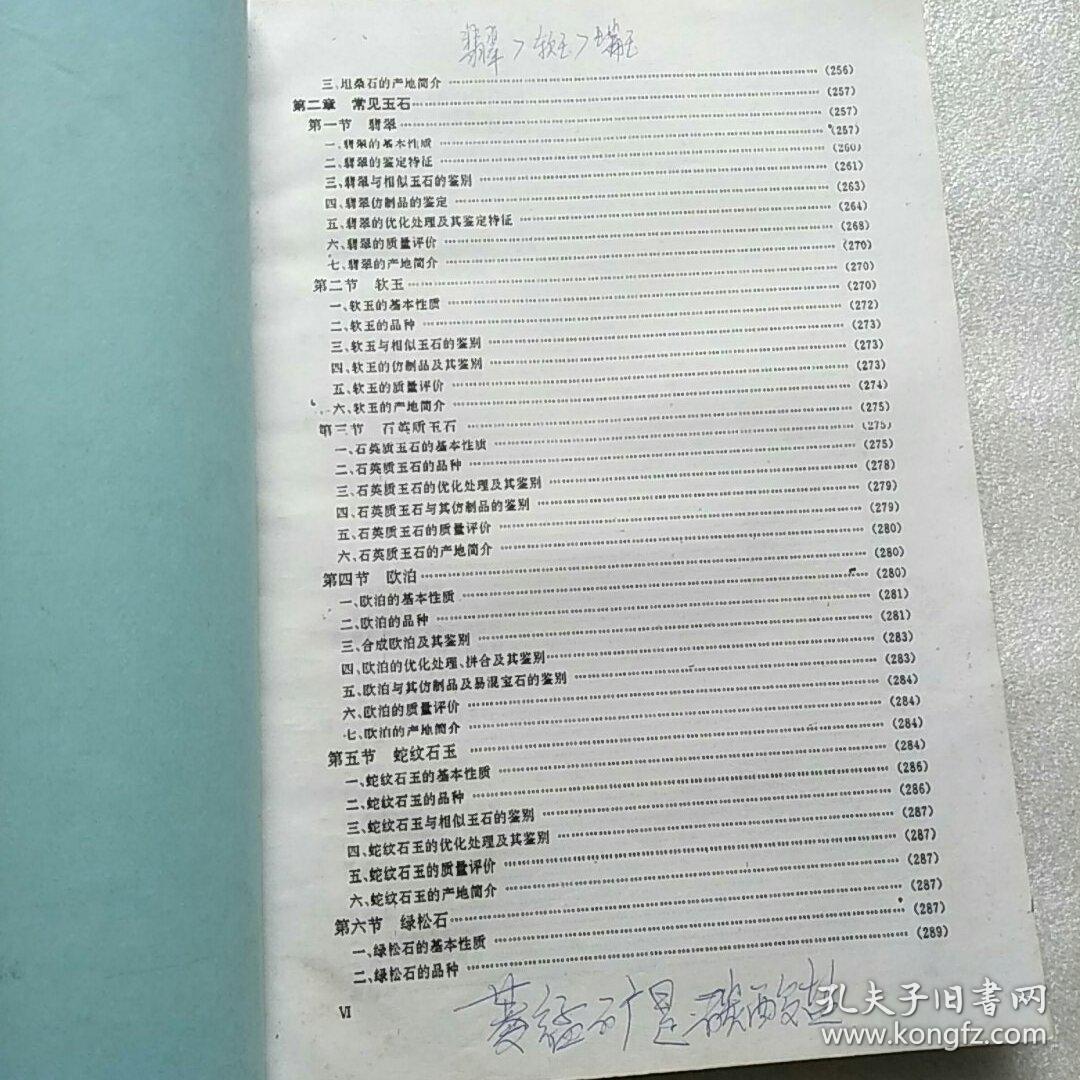 翡翠 > 软玉 >
三、坦桑石的产地简介 …… (256)
第二章 常见玉石 …… (257)
第一节 翡翠 …… (257)
一、翡翠的基本性质 …… (257)
二、翡翠的鉴定特征 …… (260)
三、翡翠与相似玉石的鉴别 …… (261)
四、翡翠仿制品的鉴定 …… (263)
五、翡翠的优化处理及其鉴定特征 …… (264)
六、翡翠的质量评价 …… (268)
七、翡翠的产地简介 …… (270)
第二节 软玉 …… (270)
一、软玉的基本性质 …… (270)
二、软玉的品种 …… (272)
三、软玉与相似玉石的鉴别 …… (273)
四、软玉的仿制品及其鉴别 …… (273)
五、软玉的质量评价 …… (273)
六、软玉的产地简介 …… (274)
第三节 石英质玉石 …… (275)
一、石英质玉石的基本性质 …… (275)
二、石英质玉石的品种 …… (275)
三、石英质玉石的优化处理及其鉴别 …… (278)
四、石英质玉石与其仿制品的鉴别 …… (279)
五、石英质玉石的质量评价 …… (279)
六、石英质玉石的产地简介 …… (280)
第四节 欧泊 …… (280)
一、欧泊的基本性质 …… (280)
二、欧泊的品种 …… (281)
三、合成欧泊及其鉴别 …… (281)
四、欧泊的优化处理、拼合及其鉴别 …… (283)
五、欧泊与其仿制品及易混宝石的鉴别 …… (283)
六、欧泊的质量评价 …… (284)
七、欧泊的产地简介 …… (284)
第五节 蛇纹石玉 …… (284)
一、蛇纹石玉的基本性质 …… (284)
二、蛇纹石玉的品种 …… (286)
三、蛇纹石玉与相似玉石的鉴别 …… (286)
四、蛇纹石玉的优化处理及其鉴别 …… (287)
五、蛇纹石玉的质量评价 …… (287)
六、蛇纹石玉的产地简介 …… (287)
第六节 绿松石 …… (287)
一、绿松石的基本性质 …… (287)
二、绿松石的品种 …… (289)
Ⅵ
菱锰矿是碳酸盐
孔夫子旧书网
www.kongfz.com